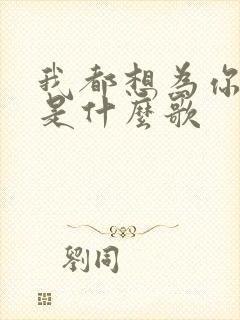 我都想為你
是什麼歌
劉同